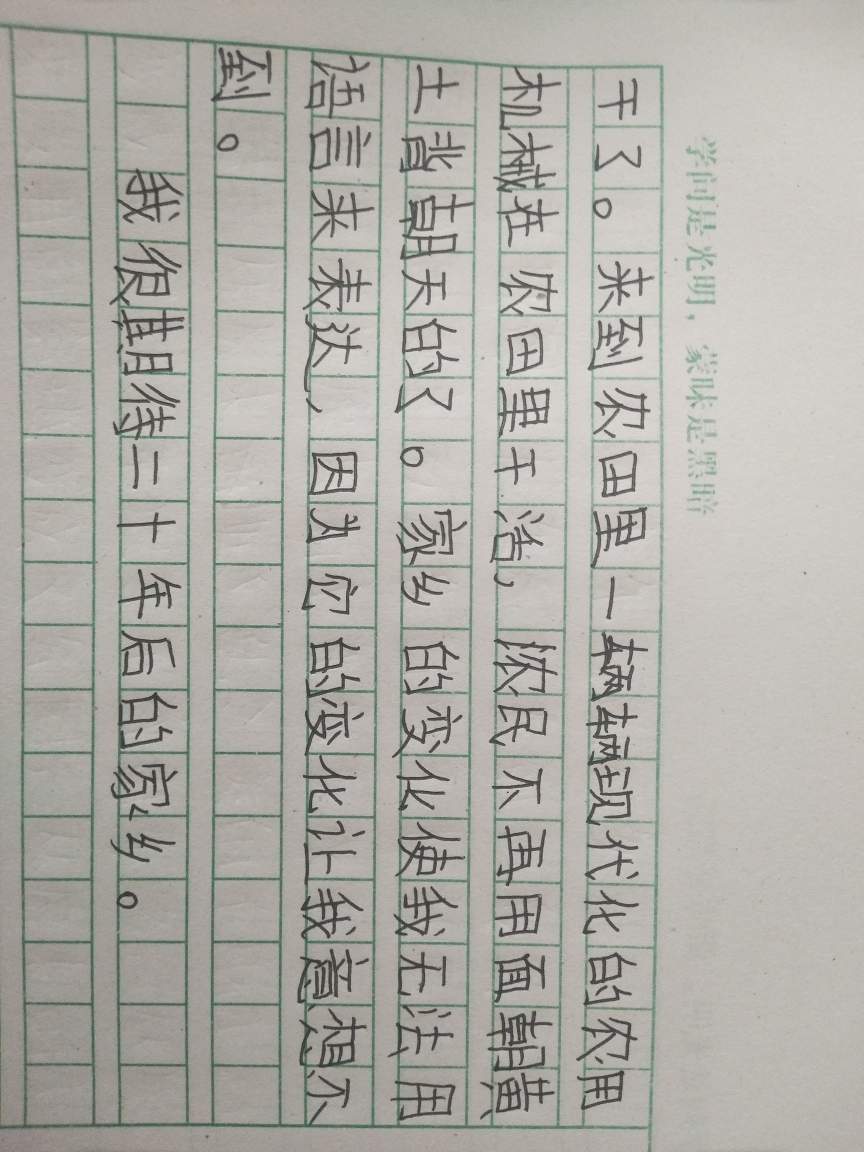 学问是光明，蒙昧是黑暗
干了。来到农田里一辆辆现代化的农用
机械在农田里干活，浓民不再用面朝黄
土背朝天的了。家乡的变化使我无法用
语言来表达，因为它的变化让我意想不
到。
我很期待二十年后的家乡。